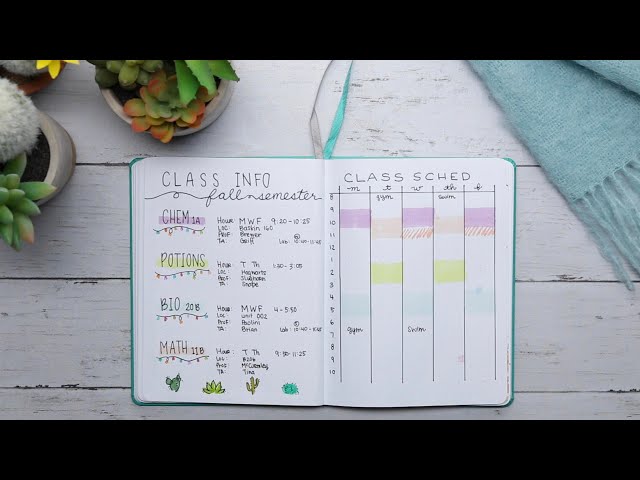 CLASS INFO
fall semester
CHEM 1A
Hour: M W F 9:20-10:25
Loc: Baskin 160
Prof: Breyer
TA: Griff Lab: 10:40-11:45
POTIONS
Hour: T Th 1:30-3:05
Loc: Hogwarts
Prof: Slughorn
TA: Snape
BIO 20B
Hour: MWF 4-5:50
Loc: Unit 002
Prof: Paolini
TA: Brian Lab:
MATH 11B
Hour: T Th 9:50-11:25
Loc:
Prof:
TA: Tina
CLASS SCHED
m t w th f
8 gym swim
9
10
11
1
2
3
4
5
6
7 gym swim
8
9
10